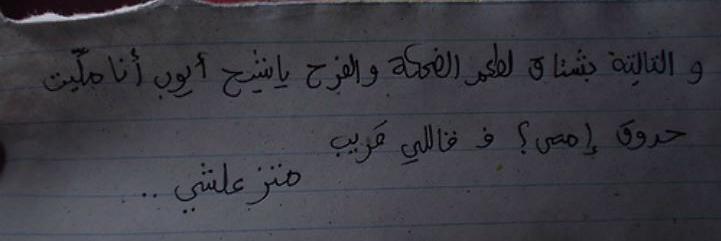 و التالتة بشتاق لطعم الضحكة والفرح ياشيخ أيوب أنا ملّيت
حدوق إمتى؟ ف قاللي قريب
متزعلشي ..